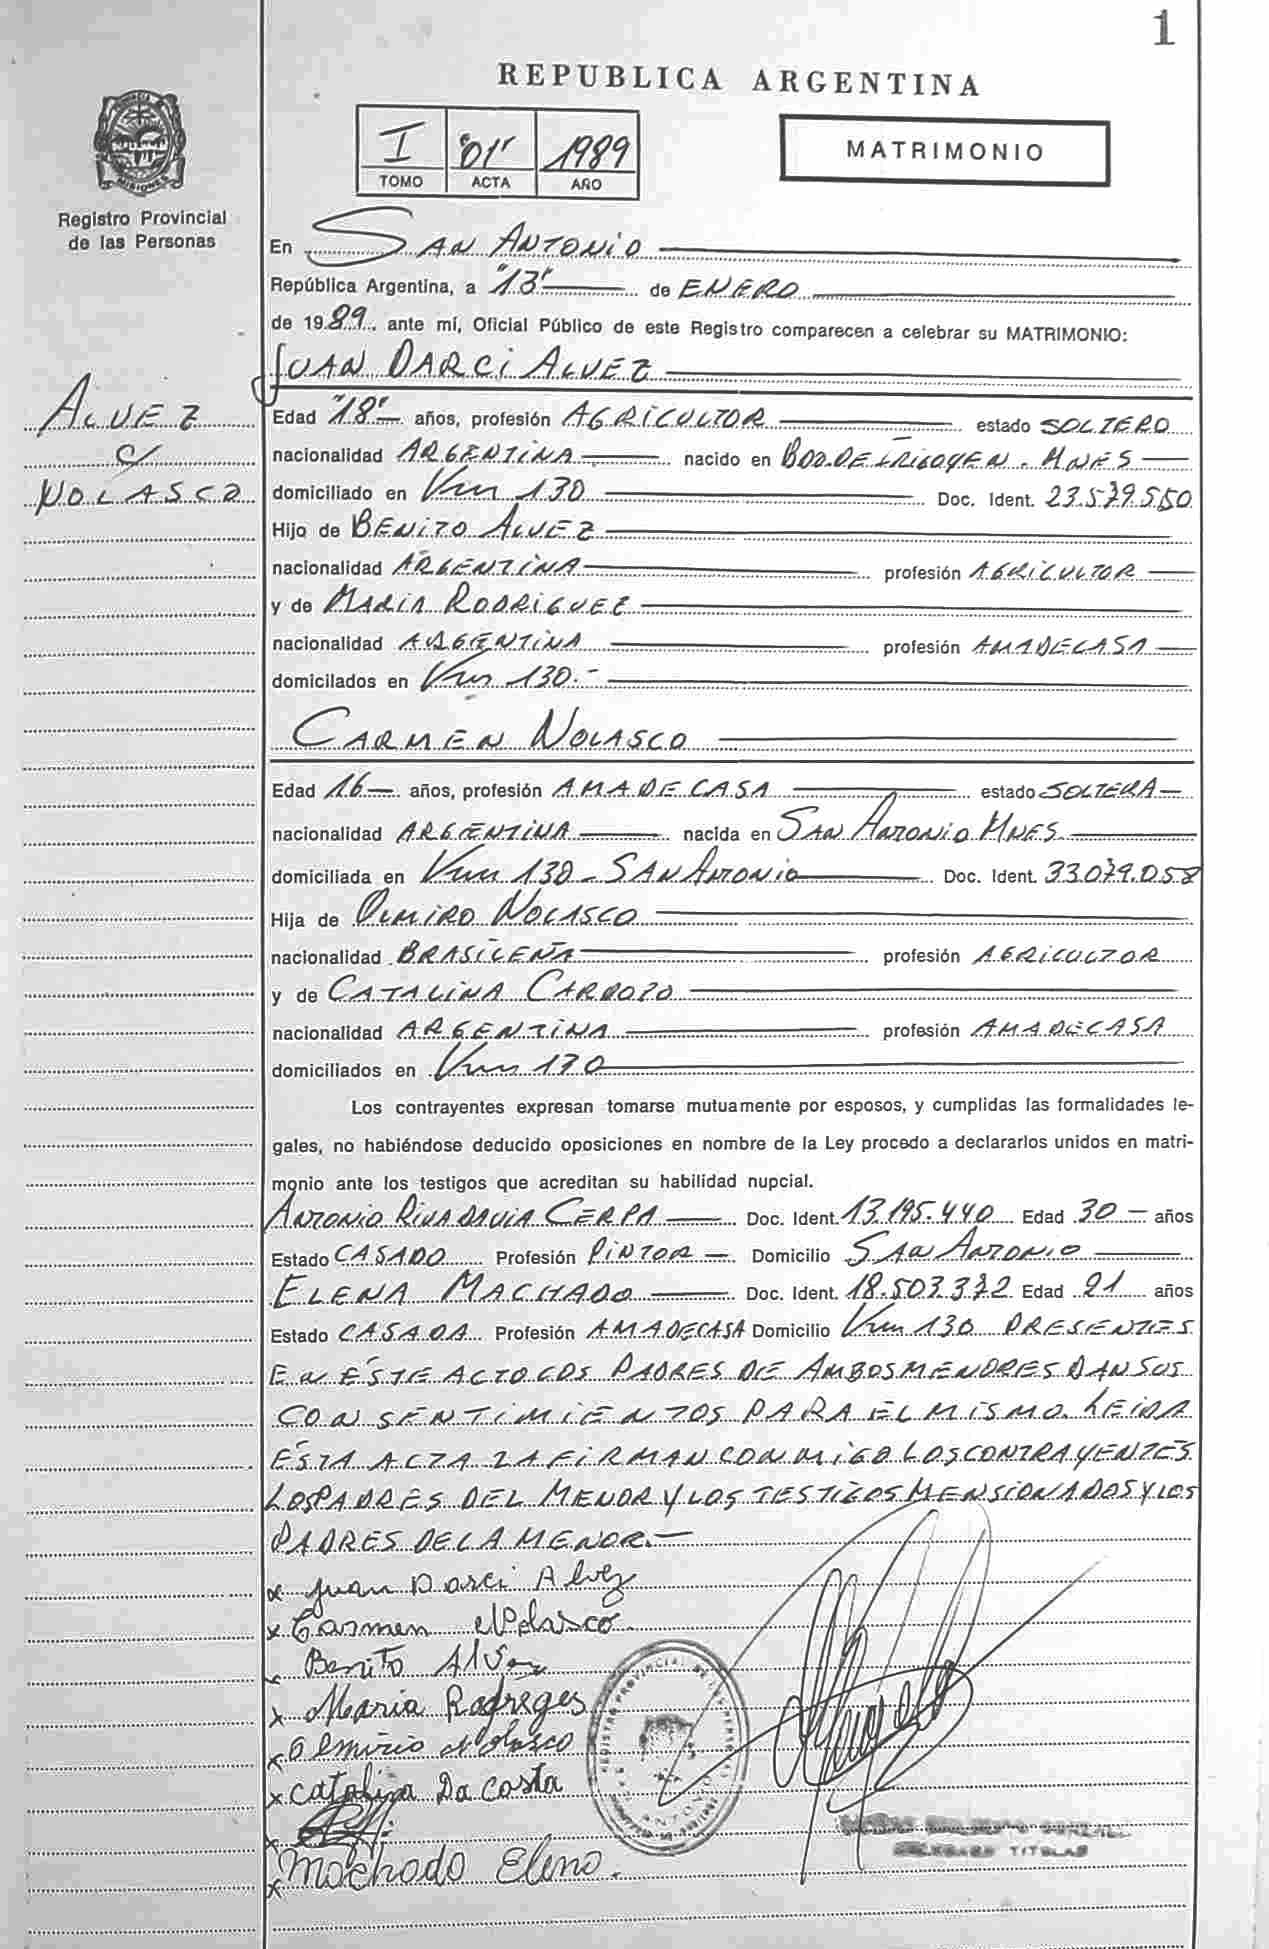 1
REPUBLICA ARGENTINA
I "01" 1989
TOMO ACTA AÑO
MATRIMONIO
MISIONES
Registro Provincial
de las Personas
ALVEZ
c/
NOLASCO
En SAN ANTONIO
República Argentina, a "13" de ENERO
de 1989. ante mí, Oficial Público de este Registro comparecen a celebrar su MATRIMONIO:
JUAN DARCI ALVEZ
Edad "18" años, profesión AGRICULTOR estado SOLTERO
nacionalidad ARGENTINA nacido en BDO.DE IRIGOYEN. MNES
domiciliado en Km 130 Doc. Ident. 23.579.550
Hijo de BENITO ALVEZ
nacionalidad ARGENTINA profesión AGRICULTOR
y de MARIA RODRIGUEZ
nacionalidad ARGENTINA profesión AMADECASA
domicilados en Km 130.-
CARMEN NOLASCO
Edad 16 años, profesión AMA DE CASA estado SOLTERA
nacionalidad ARGENTINA nacida en SAN ANTONIO MNES.
domiciliada en Km 130 - SAN ANTONIO Doc. Ident. 33.079.058
Hija de OLMIRO NOLASCO
nacionalidad BRASILEÑA profesión AGRICULTOR
y de CATALINA CARDOZO
nacionalidad ARGENTINA profesión AMADECASA
domiciliados en Km 130
Los contrayentes expresan tomarse mutuamente por esposos, y cumplidas las formalidades le-
gales, no habiéndose deducido oposiciones en nombre de la Ley procedo a declararlos unidos en matri-
monio ante los testigos que acreditan su habilidad nupcial.
ANTONIO RIVADAVIA CERPA Doc. Ident. 13.195.440 Edad 30 años
Estado CASADO Profesión PINTOR Domicilio SAN ANTONIO
ELENA MACHADO Doc. Ident. 18.503.372 Edad 21 años
Estado CASADA Profesión AMADECASA Domicilio Km 130 PRESENTES
EN ÉSTE ACTO LOS PADRES DE AMBOS MENORES DAN SUS
CONSENTIMIENTOS PARA EL MISMO. LEIDA
ÉSTA ACTA LA FIRMAN CONMIGO LOS CONTRAYENTES
LOS PADRES DEL MENOR Y LOS TESTIGOS MENSIONADOS Y LOS
PADRES DE LA MENOR.-
x Juan Darci Alvez
x Carmen Nolasco.
x Benito Alvez
x Maria Rodreges
x Olmirio Nolasco
x Catalina Da Costa
x
x Machado Elena.
REGISTRO PROVINCIAL DE LAS PERSONAS
TITULAR